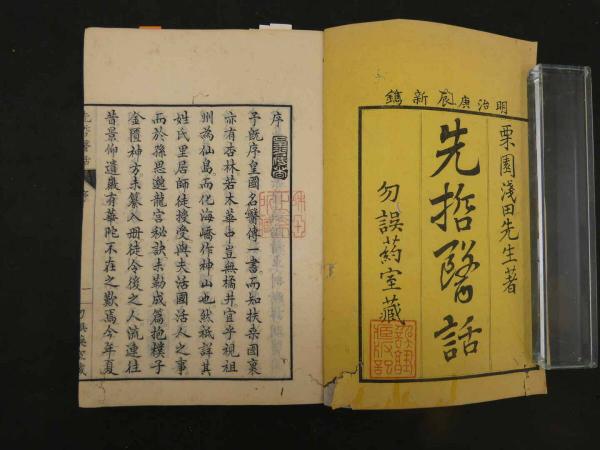 明治庚辰新鐫
栗園淺田先生著
先哲醫話
勿誤葯室藏
序
予既序皇國名醫傳一書而知扶桑國裏
亦有杏林若木華中豈無橘井宜乎視祖
洲為仙島而化海嶠作神山也然祗詳其
姓氏里居師徒授受與夫活國活人之事
而於孫思邈龍宮秘訣未勒成篇抱樸子
金匱神方未纂入冊徒令後之人流連往
昔景仰遺徽有華陀不在之歎焉今年夏
先哲醫話
序
一
勿誤藥室藏